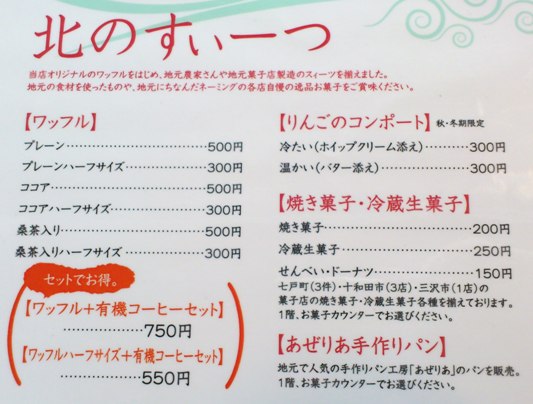 北のすぃーつ
当店オリジナルのワッフルをはじめ、地元農家さんや地元菓子店製造のスィーツを揃えました。
地元の食材を使ったものや、地元にちなんだネーミングの各店自慢の逸品お菓子をご賞味ください。
【ワッフル】
プレーン……………………500円
プレーンハーフサイズ…………300円
ココア……………………500円
ココアハーフサイズ…………300円
桑茶入り…………………500円
桑茶入りハーフサイズ…………300円
セットでお得。
【ワッフル+有機コーヒーセット】
………………750円
【ワッフルハーフサイズ+有機コーヒーセット】
………………550円
【りんごのコンポート】秋・冬期限定
冷たい(ホイップクリーム添え)………300円
温かい(バター添え)…………300円
【焼き菓子・冷蔵生菓子】
焼き菓子……………………200円
冷蔵生菓子…………………250円
せんべい・ドーナツ……………150円
七戸町(3件)・十和田市(3店)・三沢市(1店)の
菓子店の焼き菓子・冷蔵生菓子各種を揃えております。
1階、お菓子カウンターでお選びください。
【あぜりあ手作りパン】
地元で人気の手作りパン工房「あぜりあ」のパンを販売。
1階、お菓子カウンターでお選びください。